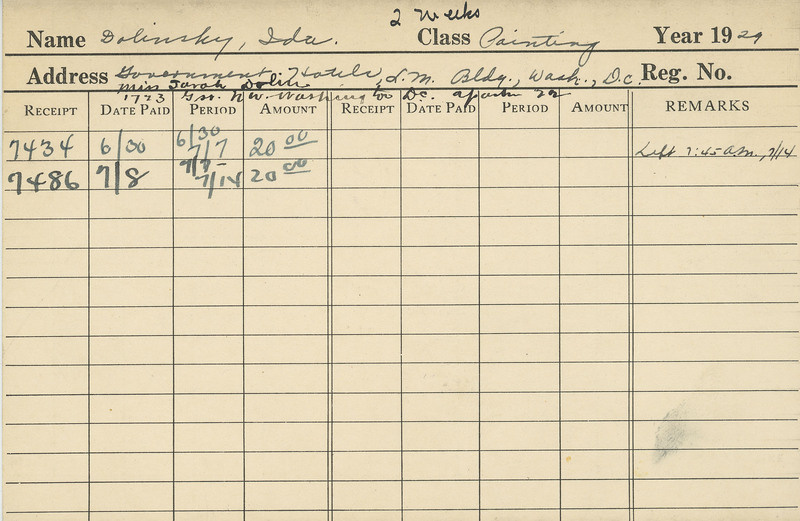 2 Weeks
Name Dolinsky, Ida. Class Painting Year 1929
Address Government Hotels, L.M. Bldg., Wash., D.C. Reg. No.
Miss Sarah Dolin
1723 G St. N.W. Washington D.C. apartm 22
RECEIPT DATE PAID PERIOD AMOUNT RECEIPT DATE PAID PERIOD AMOUNT REMARKS
7434 6/30 6/30 7/7 20 00 Left 7:45 A.M., 7/14
7486 7/8 7/7- 7/14 20 00